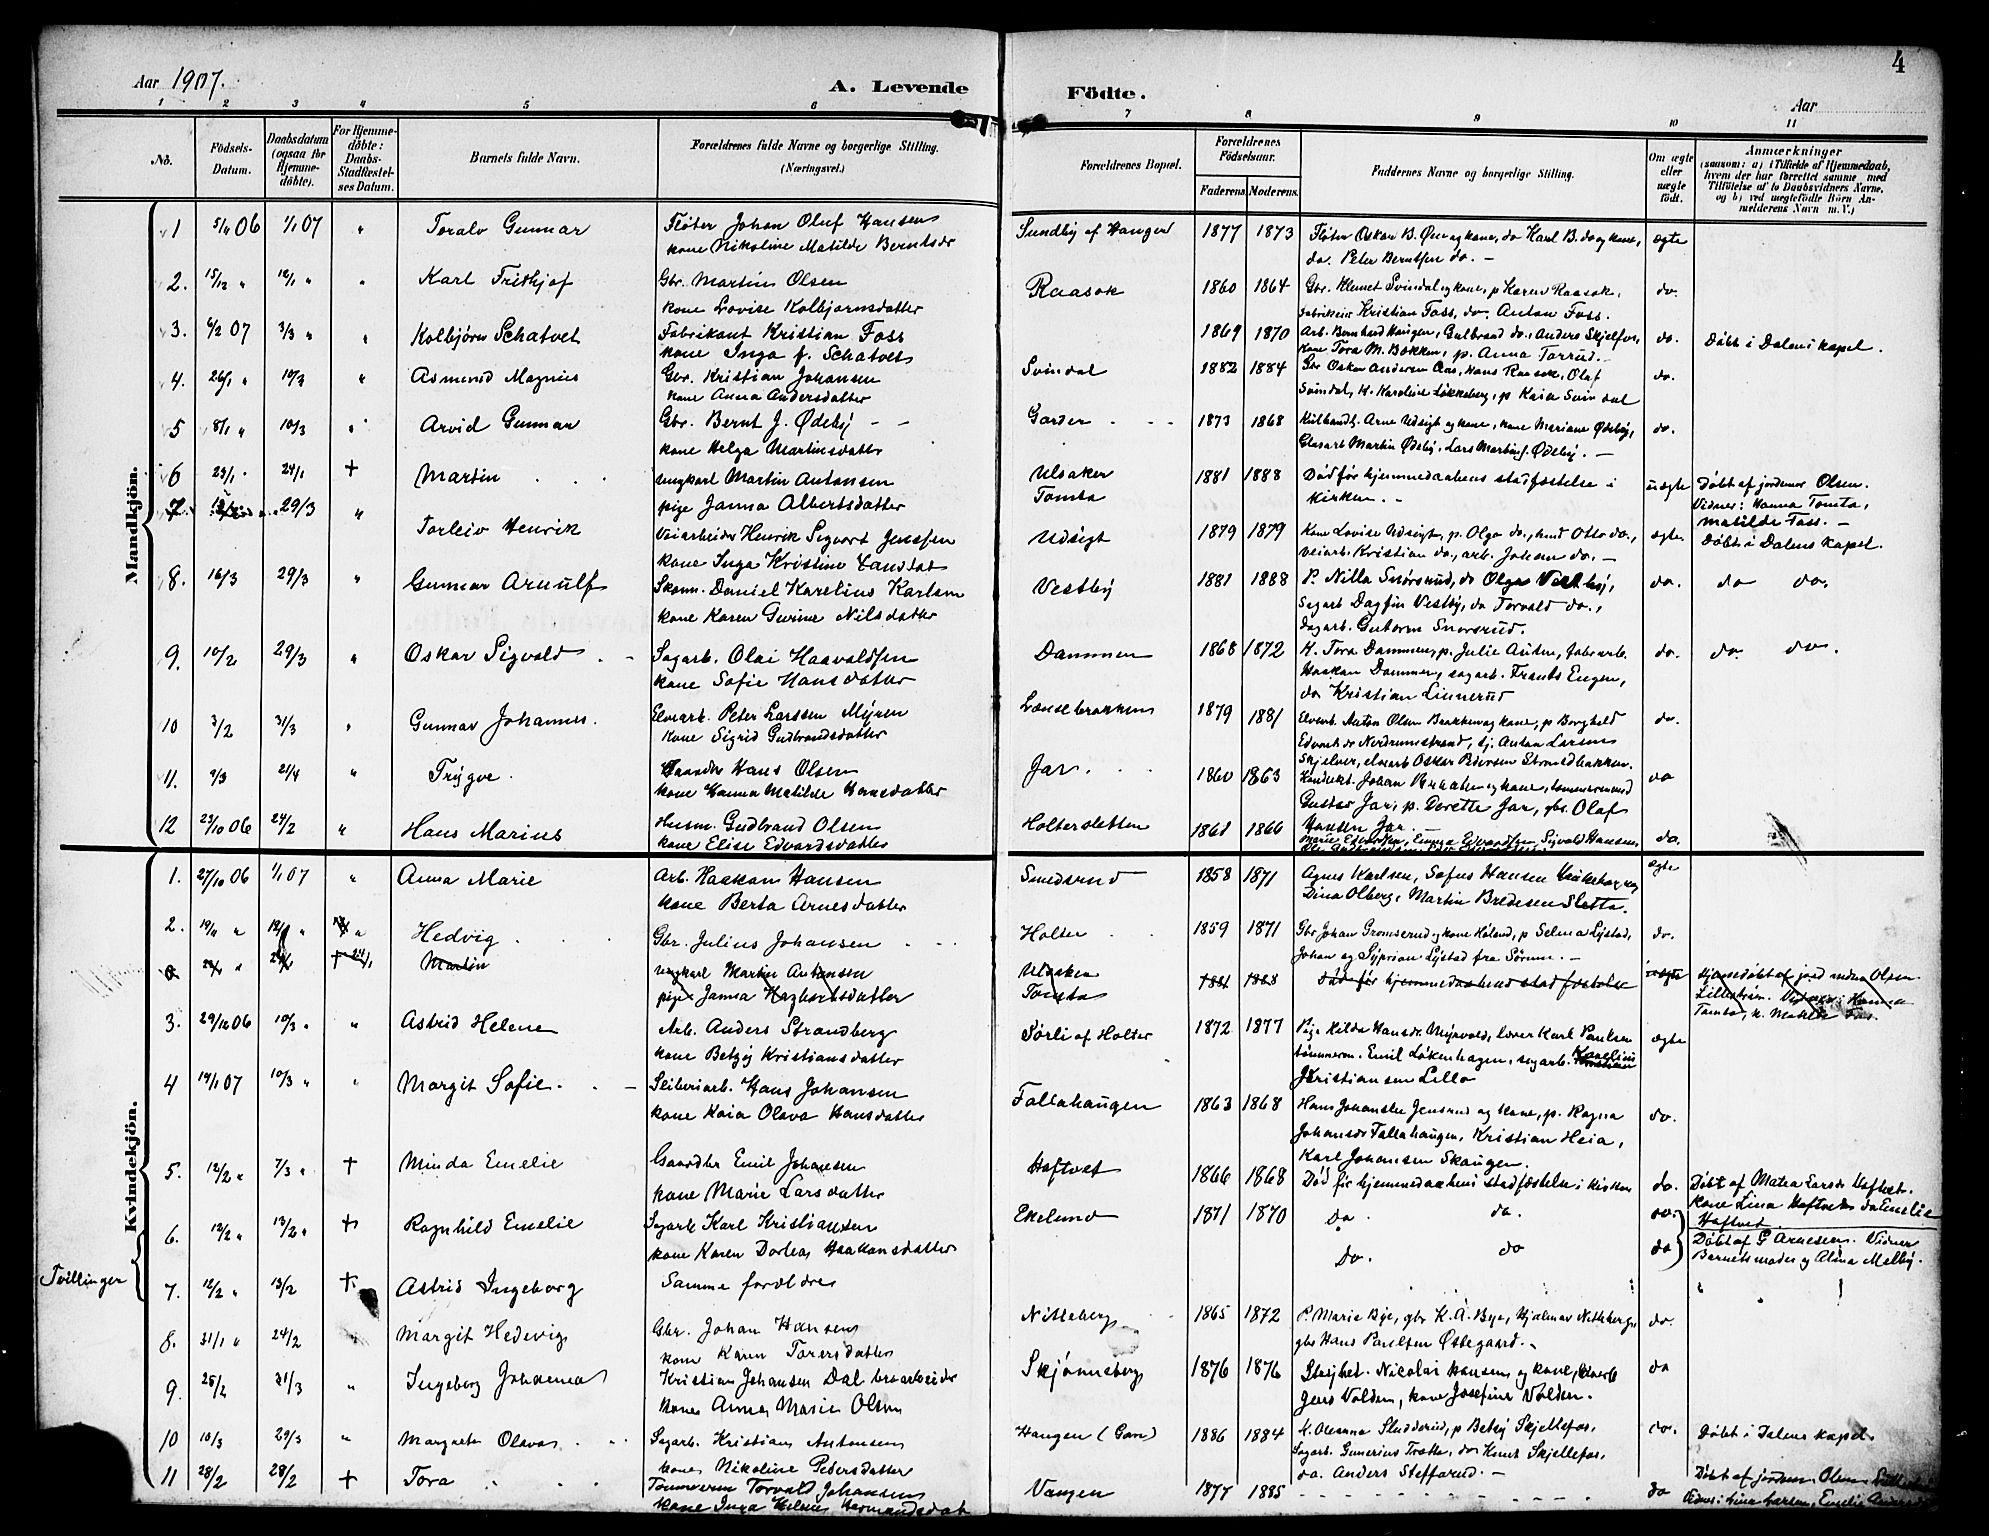 4
Aar 1907.
A. Levende Födte.
Aar
1 2 3 4 5 6 7 8 9 10 11
No.
Födsels-Datum.
Daabsdatum (ogsaa for Hjemme-döbte).
For Hjemme-döbte: Daabs-Stadfæstel-ses Datum.
Barnets fulde Navn.
Forældrenes fulde Navne og borgerlige Stilling. (Næringsvei.)
Forældrenes Bopæl.
Forældrenes Födselsaar.
Faderens. Moderens.
Faddernes Navne og borgerlige Stilling.
Om ægte eller uægte födt.
Anmærkninger (saasom: a) i Tilfælde af Hjemmedaab, hvem der har forrettet samme, med Tilföielse af to Daabsvidners Navne, og b) ved uægtefödte Börn Anmelderens Navn m. V.)
Mandkjön.
1 5/11 06 1/1 07 " Toralv Gunnar Fløter Johan Oluf Hansen Sundby af Hanger 1877 1873 Fløter Oskar B. Øien og kone, do Karl B. do og kone, ægte
kone Nikoline Matilde Berntsdr do. Peter Berntsen do. —
2. 15/12 " 12/1 " " Karl Frithjof Gbr. Martin Olsen Raasok 1860 1864 Gbr. Klemet Svindal og kone, p Karen Raasok, do.
kone Lovise Kolbjørnsdatter Fabrikeier Kristian Foss, do. Anton Foss.
3. 6/2 07 3/3 " " Kolbjørn Schatvet Fabrikant Kristian Foss 1869 1870 Arb. Bernhard Haugen, Gulbrand do., Anders Skjelfos, do. Døbt i Dalens kapel.
kone Inga f. Schatvet kone Tora M. Bakken, p. Anna Torrud. —
4. 26/1 " 10/3 " Asmund Magnus Gbr. Kristian Johansen Svindal 1882 1884 Gbr Oskar Andersen Aas, Hans Raasok, Olaf do.
kone Anna Andersdatter Svindal, K. Karoline Løkkeberg, p Kaia Svindal
5 8/1 " 10/3 " Arvid Gunnar Gbr. Bernt J. Ødeby Garder 1873 1868 Arne Udsigt og kone, kone Mariane Ødeby, do.
kone Helga Martinsdatter Glasarb Martin Ødeby, Lars Ødeby. —
6 23/1 " 24/1 + Martin ungkarl Martin Antonsen Ulsaker 1881 1888 Død før hjemmedaabens stadfæstelse i uægte Døbt af jordemor Olsen.
pige Janna Albertsdatter Tomta kirken. — Vidner: Hanna Tomta, Matilde Foss. —
7 29/3 " Torleiv Henrik Veiarbeider Henrik Sigvart Jenssen Udsigt 1879 1879 Kone Lovise Udsigt, p. Olga do., hmd Otto do., ægte Døbt i Dalens kapel.
kone Inga Kristine veiarb. Kristian do., arb. Johan do. —
8. 16/3 29/3 " Gunnar Arnulf Skom. Daniel Karelius Karlsen Vestby 1881 1888 P. Nilla Snorsrud, do Olga Vestby, do. do do.
kone Karen Gurine Nilsdatter Sagarb Dagfin Vestby, do Torvald do.,
Dagarb. Guttorm Snorsrud.
9. 10/2 29/3 " Oskar Sigvald Sagarb. Olai Haavaldsen Dammen 1868 1872 K. Tora Dammen, p. Julie Auten, Fabr.arb. do. do. do.
kone Sofie Hansdatter Haakon Dammen, sagarb. Frants Engen,
do Kristian Linnerud
10 3/2 31/3 " Gunnar Johannes. Elvearb. Peter Larssen Myren Lænsebrakken 1879 1881 Elvearb. Anton Olsen Brakken og kone, p Borghild do.
kone Sigrid Gudbrandsdatter Edvardsdr Nordrumstrand, Anton Larsen
Skjelver, elvearb Oskar Pedersen Strandbakken.
11. 9/3 21/4 " Trygve. Gaardbr Hans Olsen Jar. 1860 1863 Johan og kone, tømmermand do
kone Hanna Matilde Hansdatter Gustav Jar, p. Dorette Jar, gbr. Olaf
Hansen Jar. —
12 23/10 06 24/2 " Hans Marius Husm. Gudbrand Olsen Holtersletten 1861 1866 Edvardsen, Emma Edvardsen, Sigvald Hansen, do.
kone Elise Edvardsdatter
Kvindekjön.
1. 27/10 06 1/1 07 " Anna Marie Arb. Haakon Hansen Smedsrud 1858 1871 Agnes Karlsen, Sofus Hansen ægte
kone Berta Arnesdatter Dina Olberg, Martin Bredesen Sletta.
2. 19/11 " 12/1 " " Hedvig Gbr. Julius Johansen Holter 1859 1871 Gbr Johan Gromserud og kone Høland, p Selma Lystad, do.
Johan og Syprian Lystad fra Sørum. —
+ 24/1 Martin ungkarl Martin Antonsen Ulsaker 1881 1888 Død før hjemmedaabens stadfæstelse uægte Hjemmedøbt af jordmoder Olsen
pige Janna Tomta Lillestrøm. Vidner: Hanna
Tomta, k. Matilde Foss.
3. 29/12 06 10/3 " " Astrid Helene Arb. Anders Strandberg Sørli af Holter 1872 1877 Pige Hilda Hansdr. Myrvold, lærer Karl Paulsen ægte
kone Betzy Kristiansdatter tømmerm. Emil Løkenhagen, sagarb. Karelius
Kristiansen Lillo
4 14/1 07 10/3 " " Margit Sofie. Sliberiarb. Hans Johansen Fallahaugen 1863 1868 Hans Johansen Jensrud og kone, p. Ragna do.
kone Kaia Olava Hansdatter Johansdr Fallahaugen, Kristian Heia,
Karl Johansen Skaugen.
5. 12/2 " 7/3 " + Minda Emelie Gaardbr Emil Johansen Haftvet 1866 1868 Død før hjemmedaabens stadfæstelse i kirken do. Døbt af Matea Larsdr Haftvet.
kone Marie Larsdatter kone Lina Haftvet, do Emelie
Haftvet.
6. 12/2 " 13/2 " + Ragnhild Emelie Sagarb Karl Kristiansen Ekelund 1871 1870 do. do. do.
kone Karen Dortea Haakonsdatter do. do do Døbt af G Arnesen. Vidner
Barnets moder og Alma Melby.
Tvillinger
7. 12/2 " 13/2 + Astrid Ingeborg Samme forældre
8. 31/1 " 24/2 Margit Hedevig Gbr. Johan Hansen Nitteberg 1865 1872 P. Marie Bye, gbr K. A. Bye, Hjalmar Nitteberg, do.
kone Karen Torersdatter gbr Hans Paulsen Østegaard. —
9. 25/2 31/3 " Ingeborg Johanna Kristian Johansen Dal Skjønneberg 1876 1876 Nicolai Hansen og kone, do
kone Anna Marie Olsen Jens Volden, kone Josefine Volden.
10 10/3 29/3 " Margrete Olava Sagarb. Kristian Antonsen Haugen (Gan) 1886 1884 K. Oleanna Sludderud, p Betsy Skjellefos, do. Døbt i Dalens kapel.
kone Nikoline Pedersdatter Sagarb. Gunerius Trotte, do Knut Skjellefos,
do. Anders Stefferud. —
11 28/2 28/2 + Tora Tømmerm Torvald Johansen Vangen 1877 1885 do Døbt af jordem. Olsen
kone Inga Helene Hermandsdat Vidner: Lina Larsen, Emelie